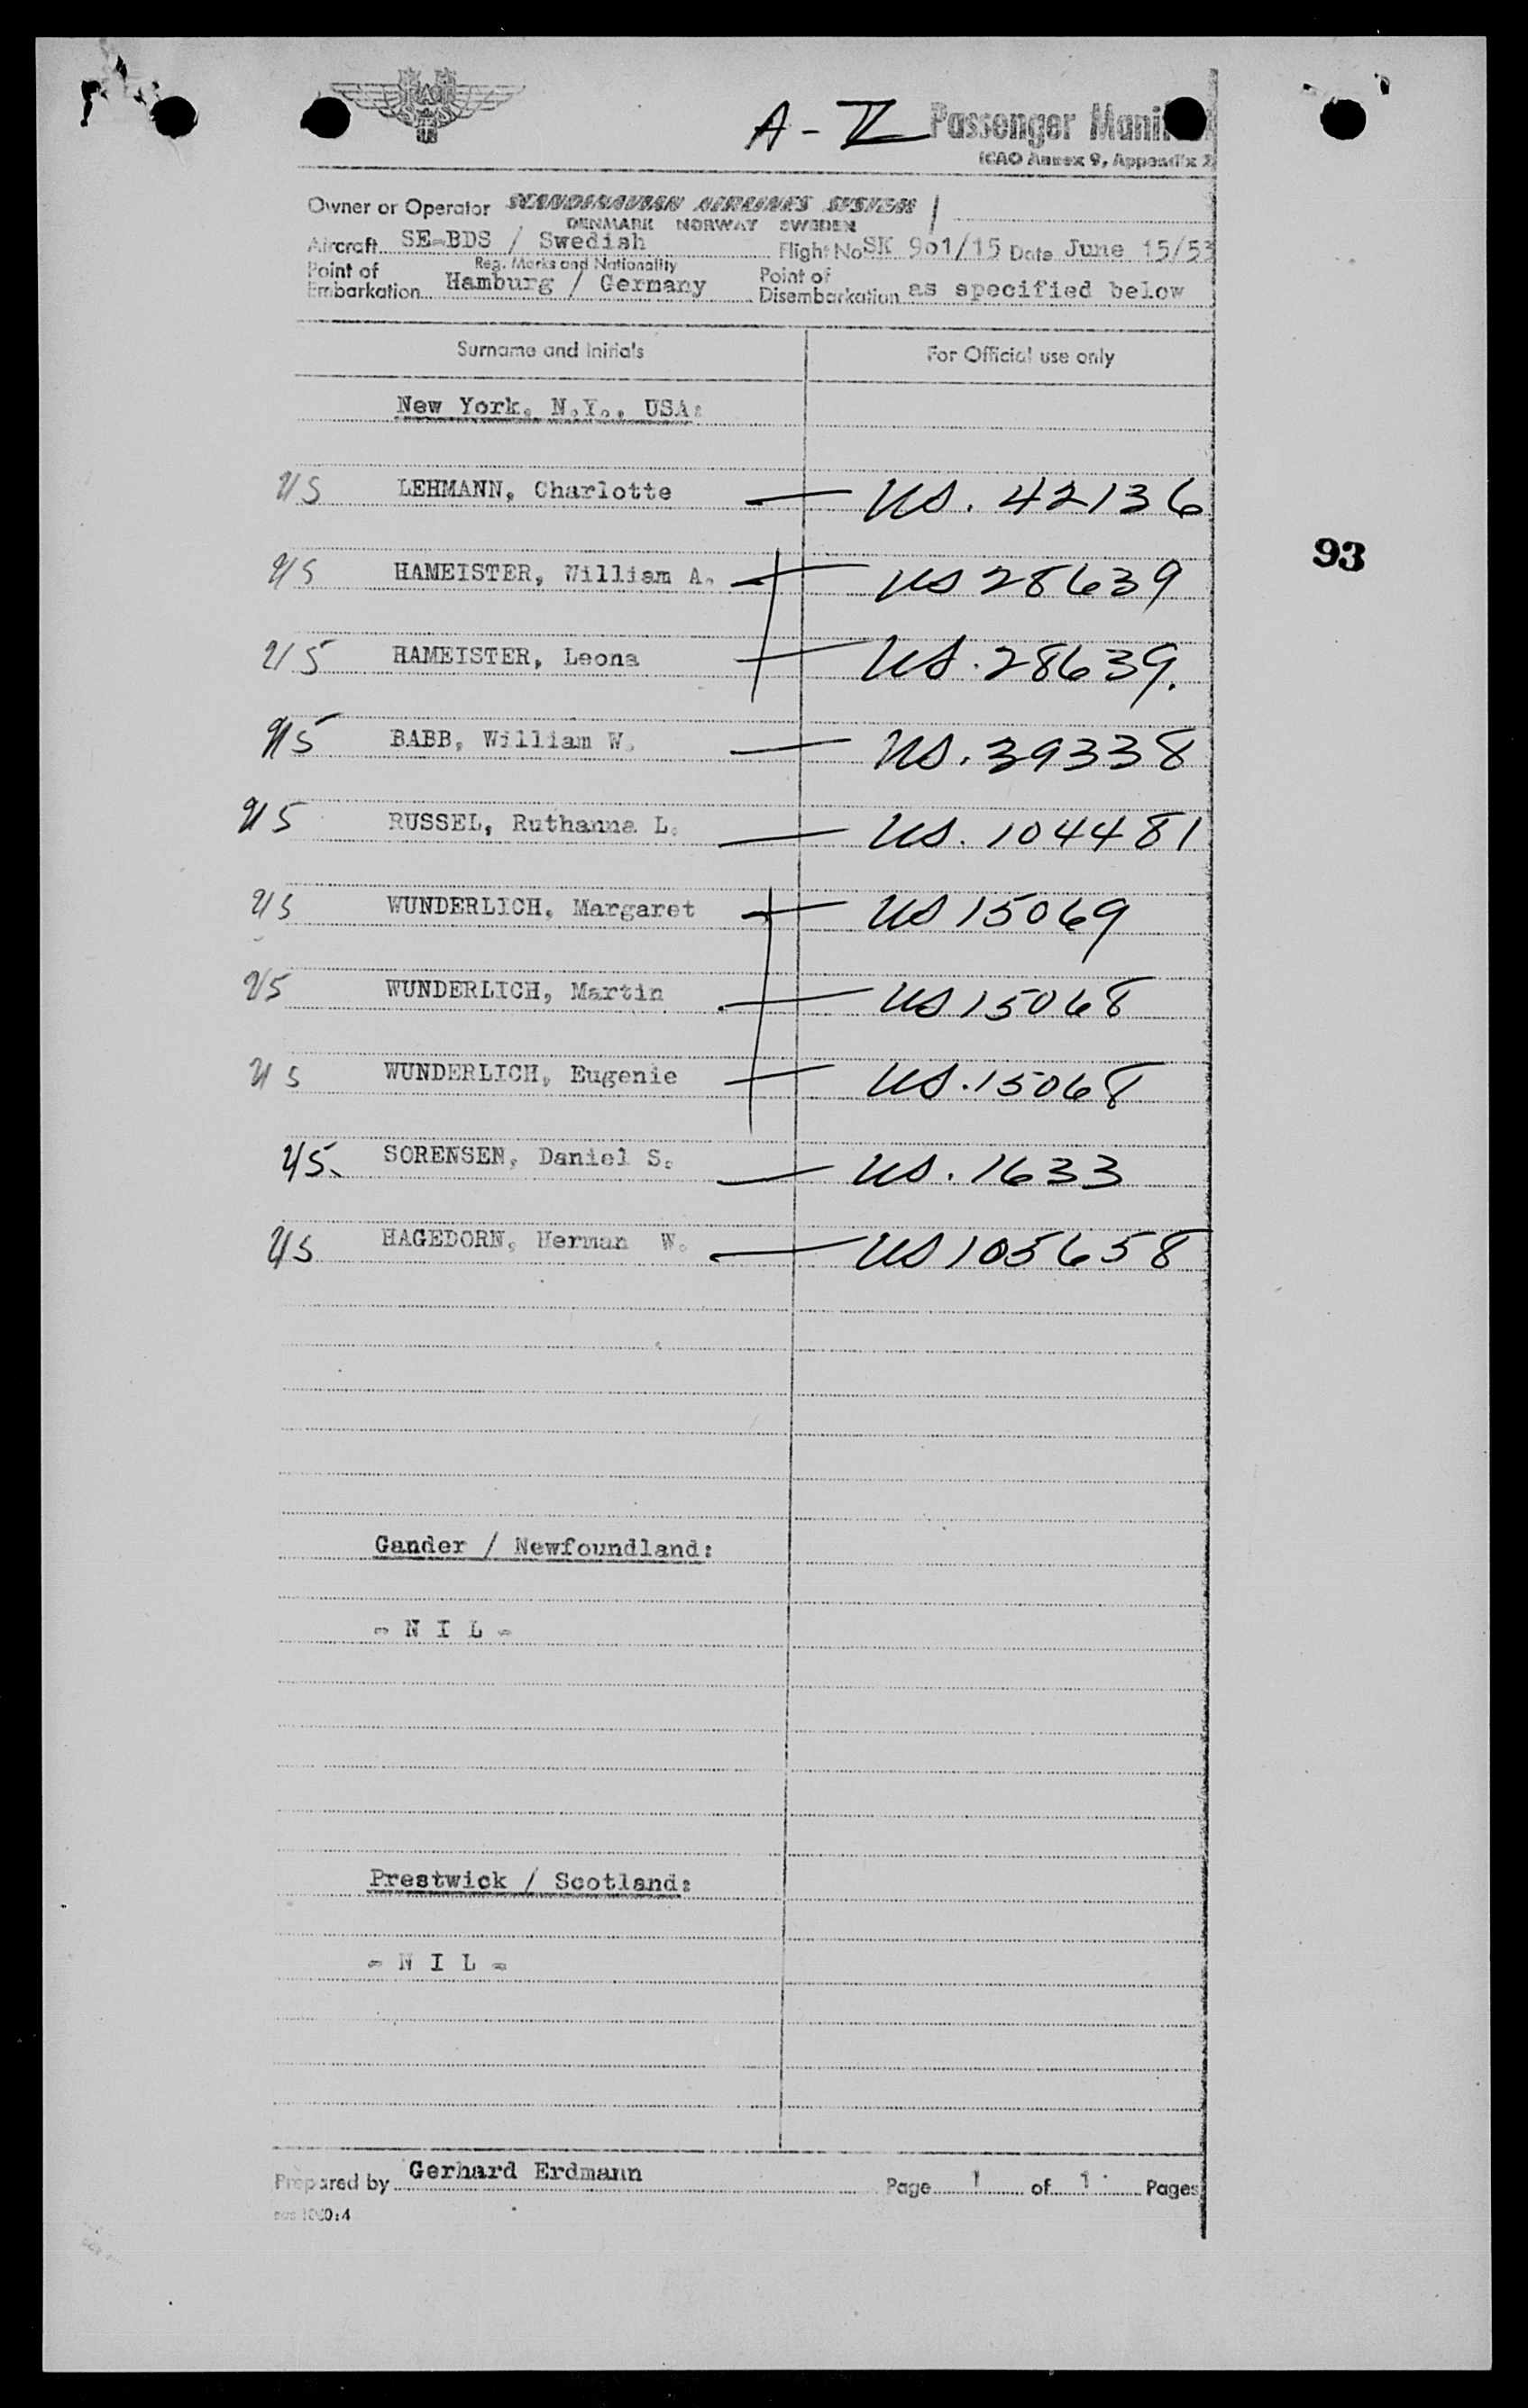 A - Z Passenger Manif
ICAO Annex 9, Appendix 2
Owner or Operator SCANDINAVIAN AIRLINES SYSTEM
DENMARK NORWAY SWEDEN
Aircraft SE-BDS / Swedish Flight No SK 9o1/15 Date June 15/53
Reg. Marks and Nationality
Point of Embarkation Hamburg / Germany Point of Disembarkation as specified below
Surname and Initials For Official use only
New York, N.Y., USA:
US LEHMANN, Charlotte — US. 42136
93
US HAMEISTER, William A. — US 28639
US HAMEISTER, Leona — US. 28639.
US BABB, William W. — US. 39338
US RUSSEL, Ruthanna L. — US. 104481
US WUNDERLICH, Margaret — US 15069
US WUNDERLICH, Martin — US 15068
US WUNDERLICH, Eugenie — US. 15068
US. SORENSEN, Daniel S. — US. 1633
US HAGEDORN, Herman W. — US 105658
Gander / Newfoundland:
- N I L -
Prestwick / Scotland:
- N I L -
Prepared by Gerhard Erdmann Page 1 of 1 Pages